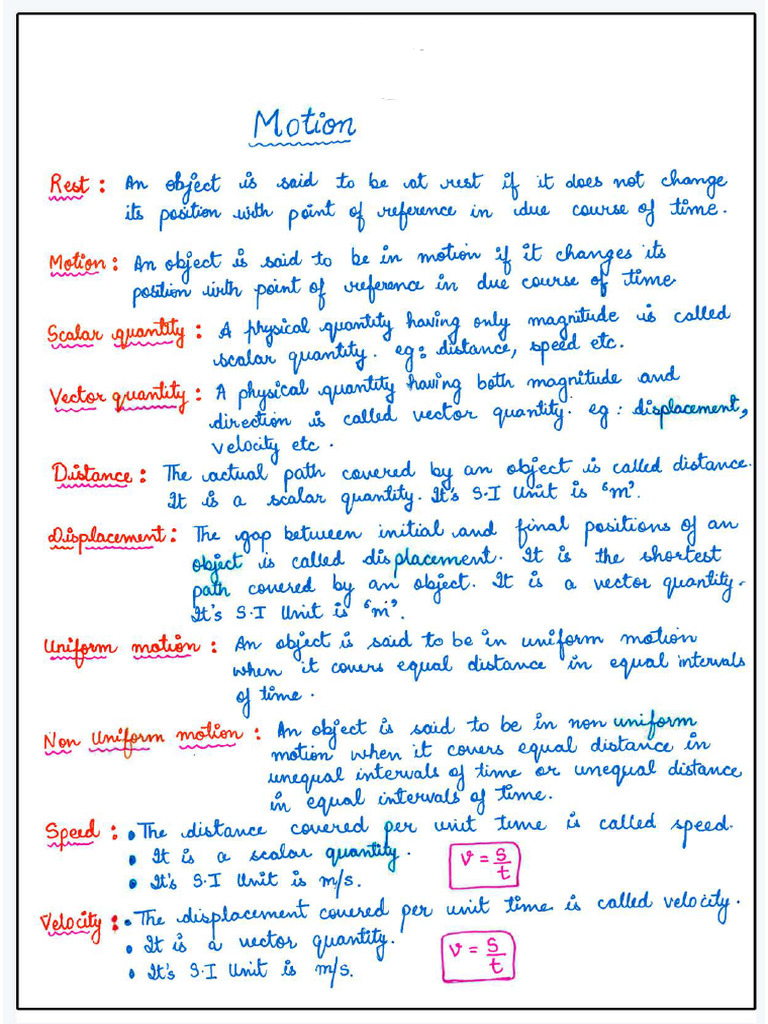 Motion
Rest : An object is said to be at rest if it does not change
its position with point of reference in due course of time.
Motion : An object is said to be in motion if it changes its
position with point of reference in due course of time
Scalar quantity : A physical quantity having only magnitude is called
scalar quantity. eg: distance, speed etc.
Vector quantity : A physical quantity having both magnitude and
direction is called vector quantity. eg : displacement,
velocity etc.
Distance : The actual path covered by an object is called distance.
It is a scalar quantity. It's S.I Unit is 'm'.
Displacement : The gap between initial and final positions of an
object is called displacement. It is the shortest
path covered by an object. It is a vector quantity.
It's S.I Unit is 'm'.
Uniform motion : An object is said to be in uniform motion
when it covers equal distance in equal intervals
of time.
Non Uniform motion : An object is said to be in non uniform
motion when it covers equal distance in
unequal intervals of time or unequal distance
in equal intervals of time.
Speed : • The distance covered per unit time is called speed.
• It is a scalar quantity.
• It's S.I Unit is m/s.
v = s/t
Velocity : • The displacement covered per unit time is called velocity.
• It is a vector quantity.
• It's S.I Unit is m/s.
v = s/t